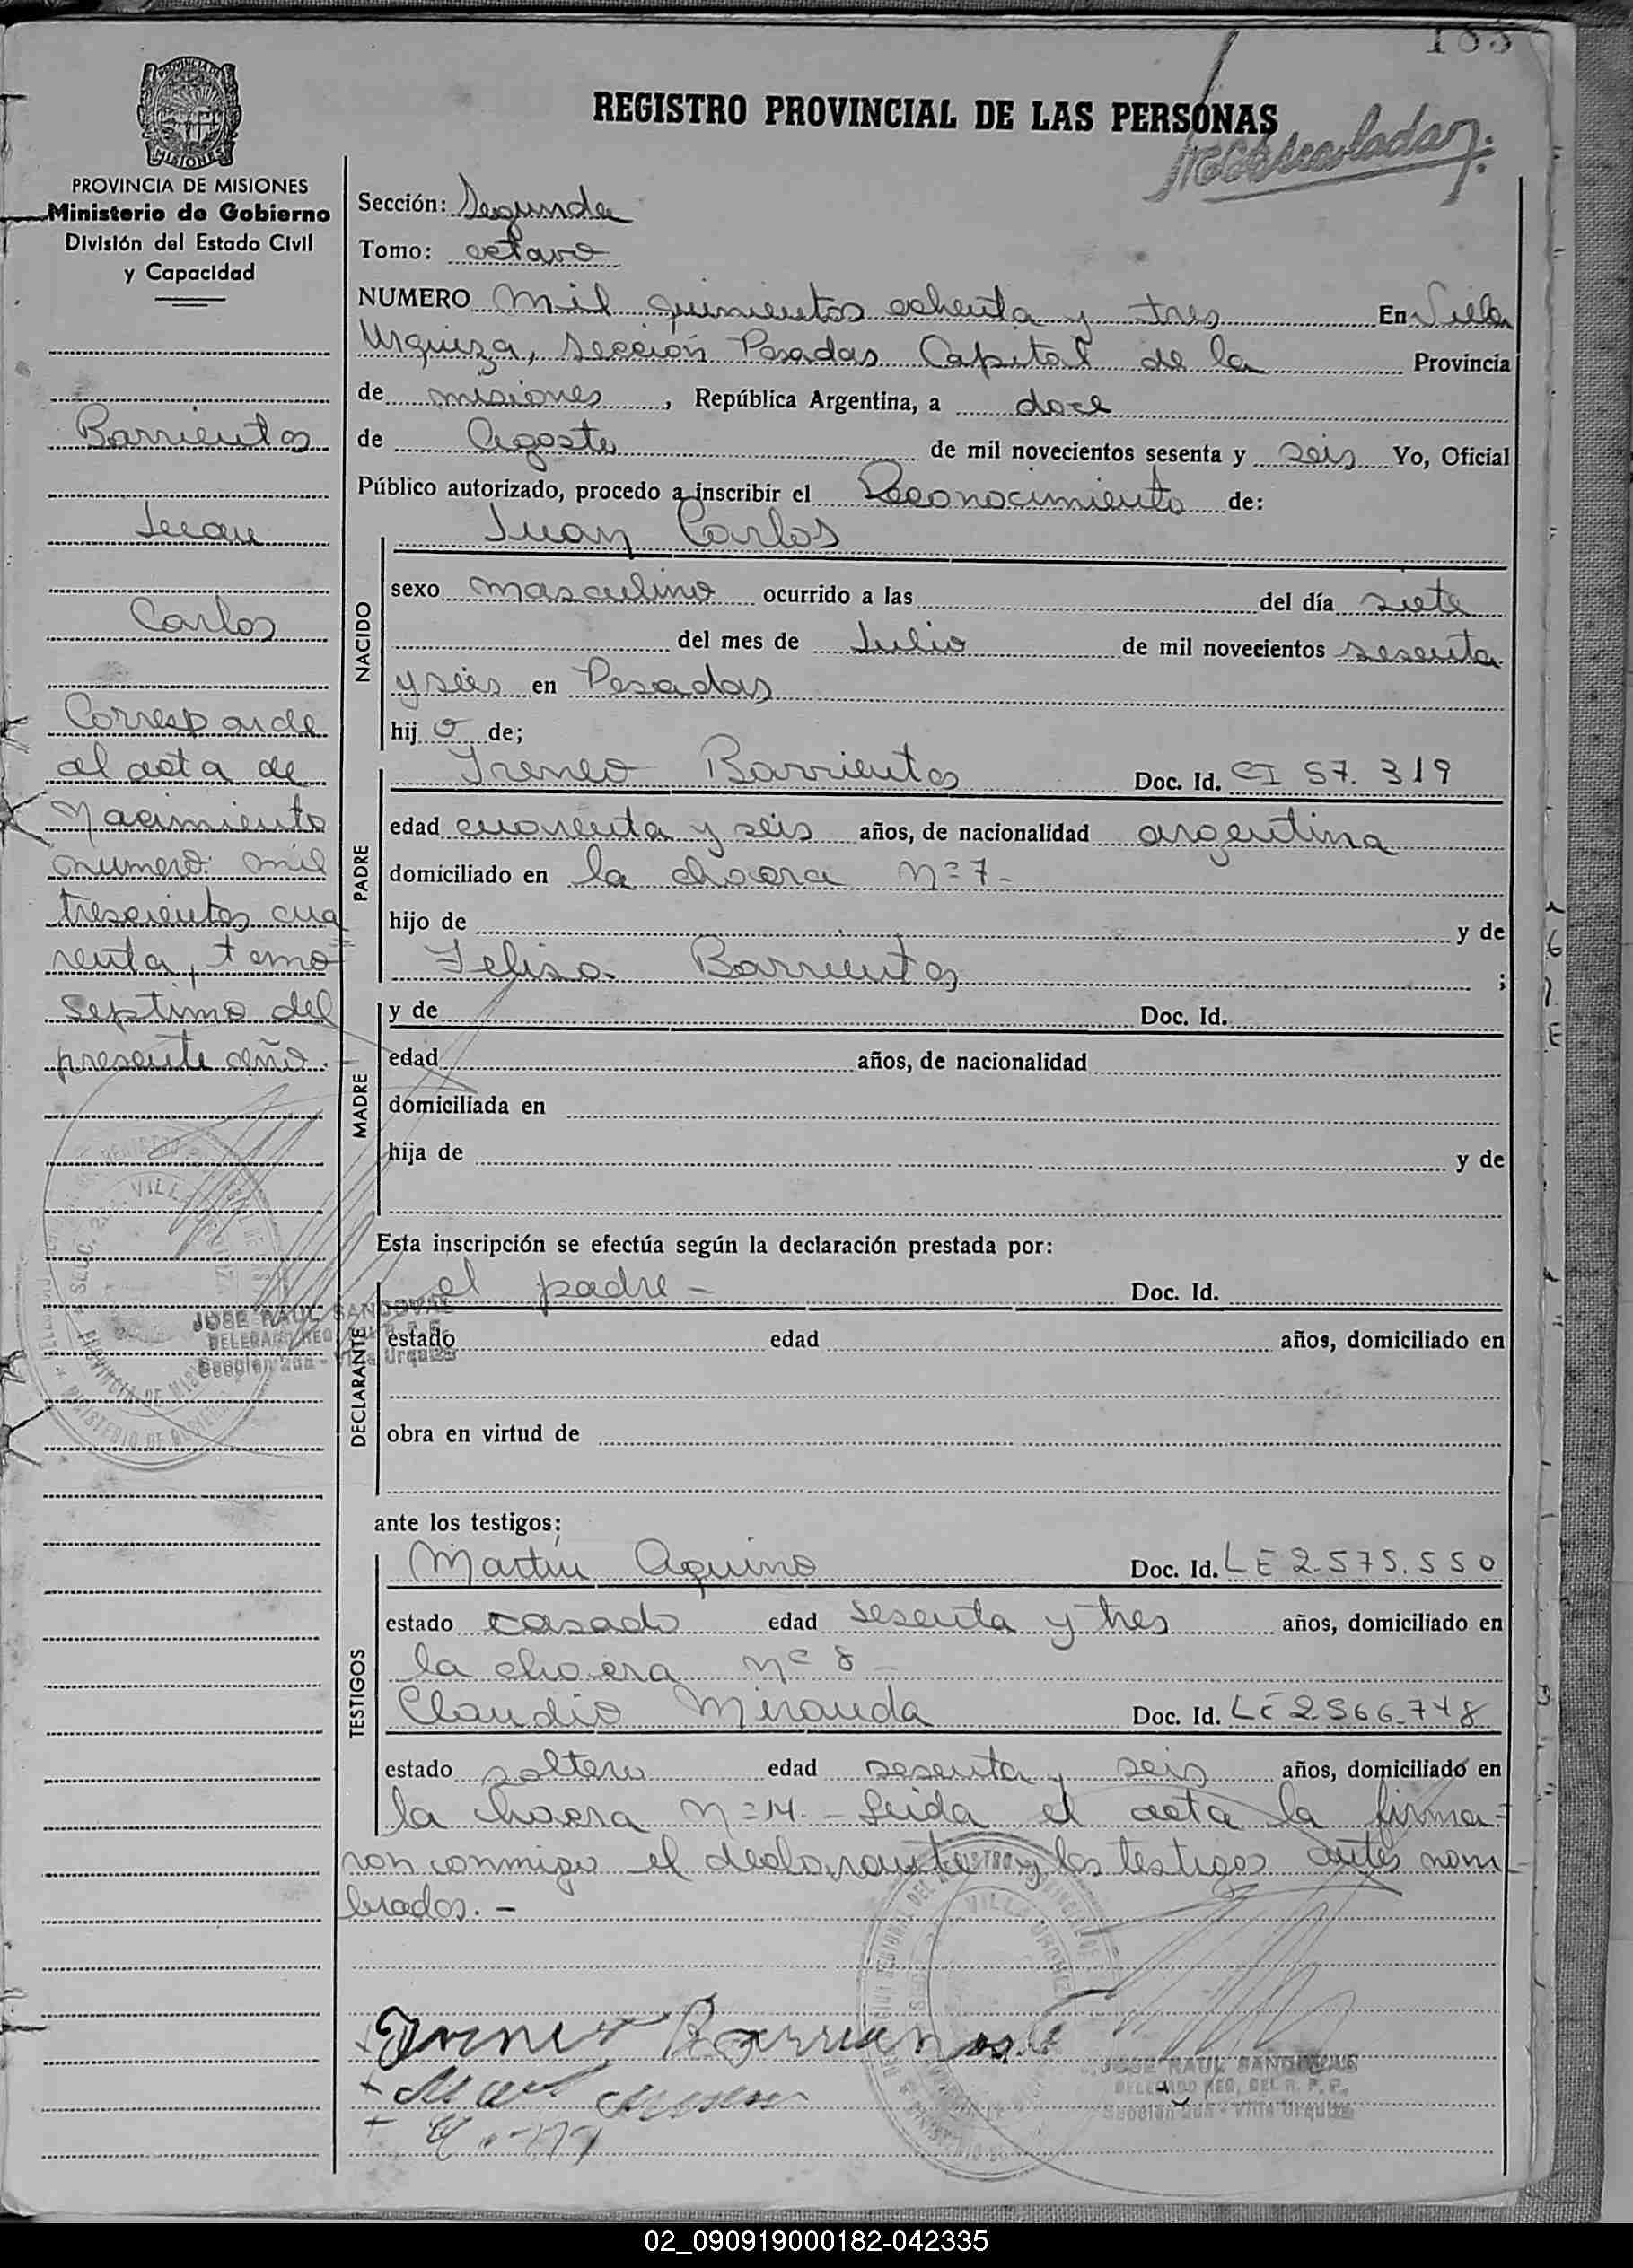 183
REGISTRO PROVINCIAL DE LAS PERSONAS
PROVINCIA DE MISIONES
Ministerio de Gobierno
División del Estado Civil
y Capacidad
Barrientos
Juan
Carlos
Corresponde
al acta de
Nacimiento
numero: mil
trescientos cua
renta, tomo
septimo del
presente año.
JOSE RAUL SANDOVAL
DELEGADO REG. DEL R. P. P.
Sección 2da - Villa Urquiza
Sección: Segunda
Tomo: octavo
NUMERO mil quinientos ochenta y tres En Villa
Urquiza, Sección Posadas Capital de la Provincia
de misiones, República Argentina, a doce
de Agosto de mil novecientos sesenta y seis Yo, Oficial
Público autorizado, procedo a inscribir el Reconocimiento de:
Juan Carlos
NACIDO
sexo masculino ocurrido a las del día siete
del mes de Julio de mil novecientos sesenta
y seis en Posadas
hij o de;
PADRE
Ireneo Barrientos Doc. Id. CI 57.319
edad cuarenta y seis años, de nacionalidad argentina
domiciliado en la chacra nº 7-
hijo de y de
Felisa Barrientos ;
MADRE
y de Doc. Id.
edad años, de nacionalidad
domiciliada en
hija de y de
Esta inscripción se efectúa según la declaración prestada por:
DECLARANTE
el padre - Doc. Id.
estado edad años, domiciliado en
obra en virtud de
ante los testigos:
TESTIGOS
Martín Aquino Doc. Id. LE 2.575.550
estado casado edad sesenta y tres años, domiciliado en
la chacra nº 8 -
Claudio Miranda Doc. Id. LE 2566.748
estado soltero edad sesenta y seis años, domiciliado en
la chacra nº 14. - Leida el acta la firma=
ron conmigo el declarante y los testigos antes nom-
brados. -
Ireneo Barrientos
JOSE RAUL SANDOVAL
DELEGADO REG. DEL R. P. P.
Sección 2da - Villa Urquiza
02_090919000182-042335